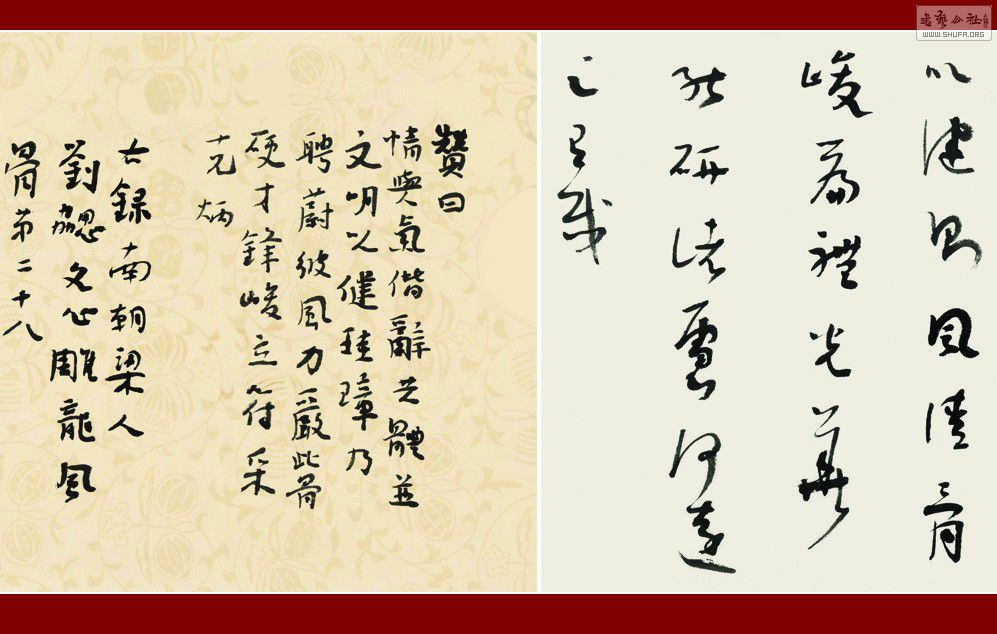 以健則風清骨
峻篇體光華
能研諸慮何遠
之有哉
贊曰
情與氣偕辭共體並
文明以健珪璋乃
聘蔚彼風力嚴此骨
硬才鋒峻立符采
克炳
右録南朝梁人
劉勰文心雕龍風
骨第二十八
書藝公社
WWW.SHUFA.ORG